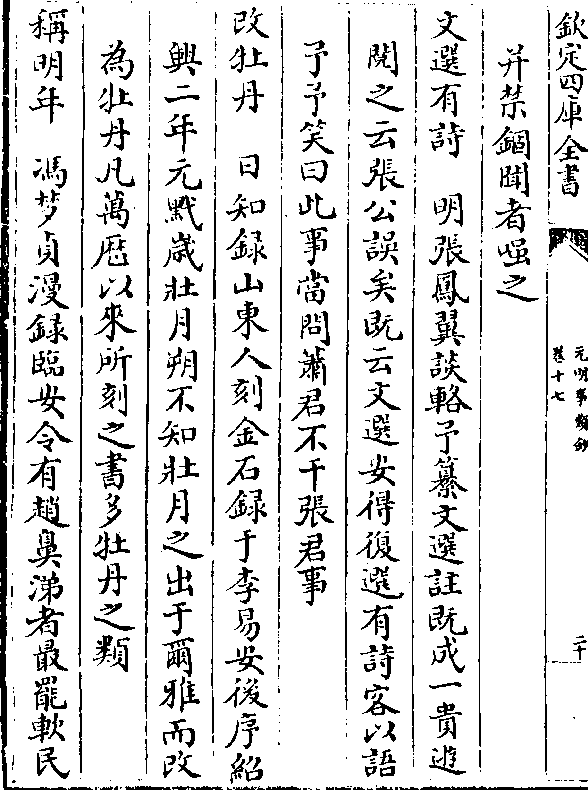 欽定四庫全書
元明事類鈔
卷十七
二十
并禁錮聞者嗤之
文選有詩　明張鳳翼談輅予纂文選註既成一貴遊
閱之云張公誤矣既云文選安得復選有詩客以語
予予笑曰此事當問蕭君不干張君事
改牡丹　日知錄山東人刻金石錄于李易安後序紹
興二年元黓歲壯月朔不知壯月之出于爾雅而改
為牡丹凡萬歷以來所刻之書多牡丹之類
稱明年　馮夢貞漫録臨安令有趙鼻涕者最罷軟民